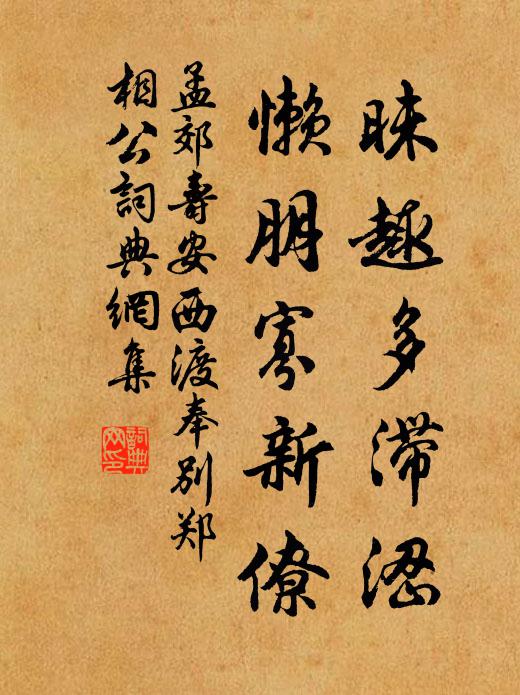 昧趣多滞涩
懒朋寡新僚
孟郊壽安西渡奉别郑
相公詞典網集
詞典
网印